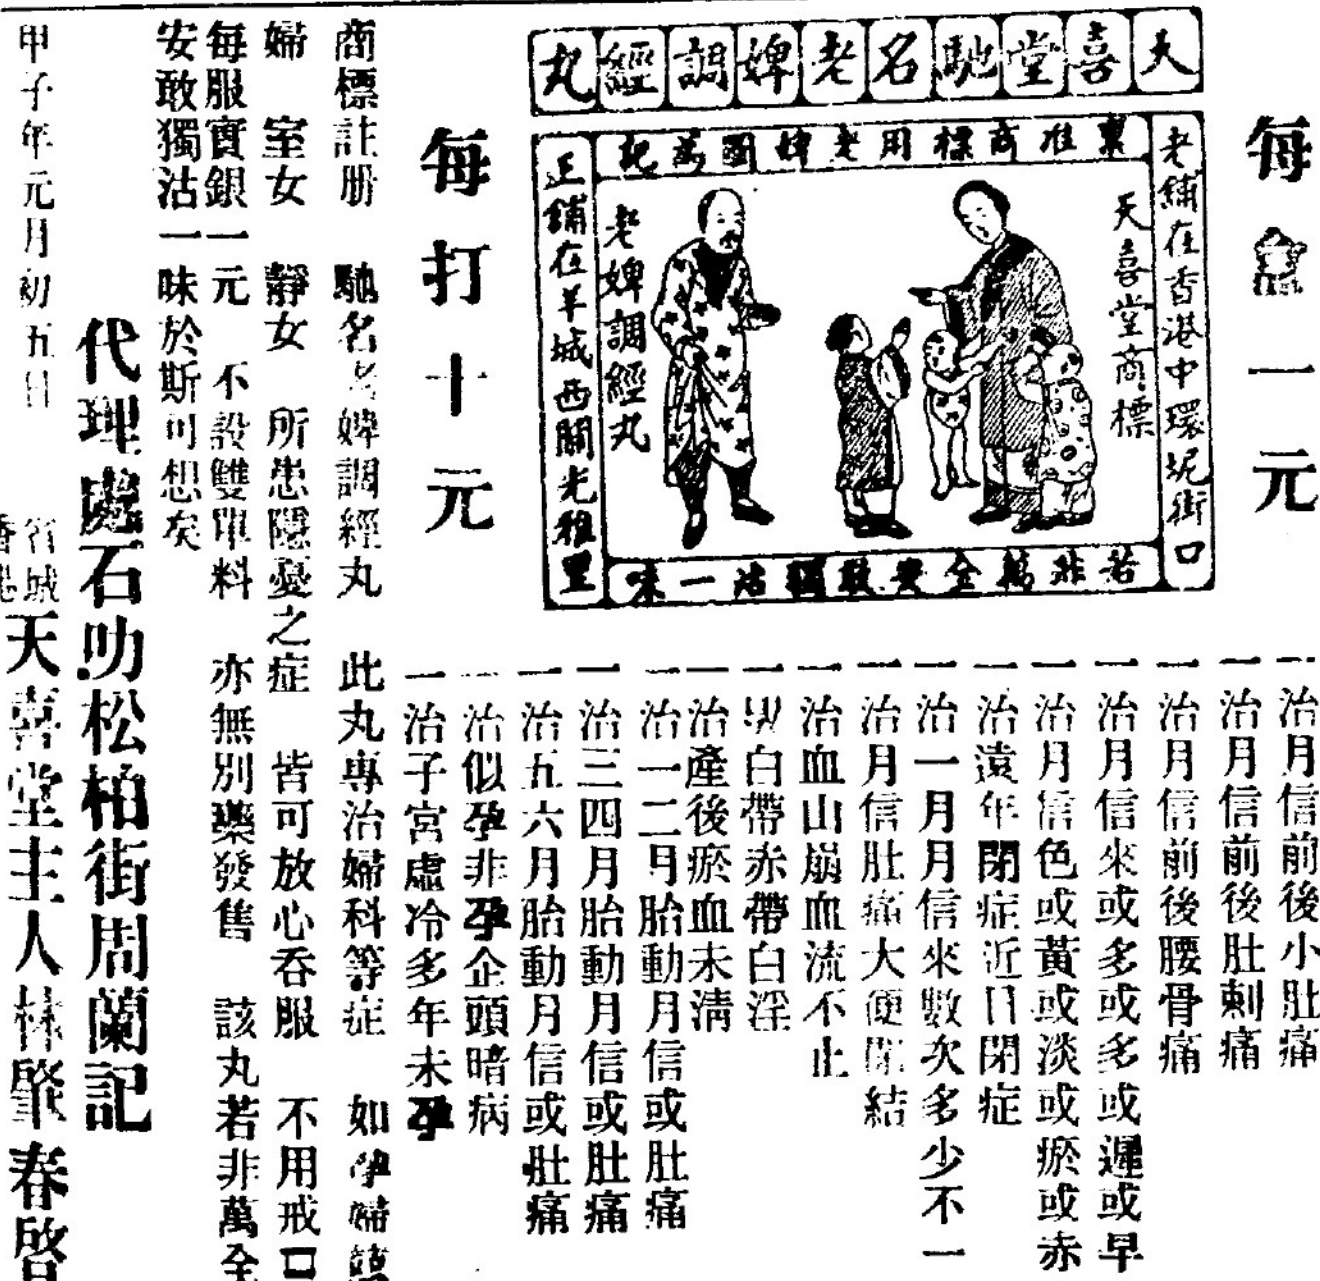 天喜堂馳名老婢調經丸
每盒一元
老舖在香港中環坭街口
稟准商標用老婢圖為記
天喜堂商標
老婢調經丸
正舖在羊城西關光雅里
若非萬全安敢獨沽一味
每打十元
一治月信前後小肚痛
一治月信前後肚刺痛
一治月信前後腰骨痛
一治月信來或多或多或遲或早
一治月信色或黃或淡或瘀或赤
一治遠年閉症近日閉症
一治一月月信來數次多少不一
一治月信肚痛大便閉結
一治血山崩血流不止
一治白帶赤帶白淫
一治產後瘀血未清
一治一二月胎動月信或肚痛
一治三四月胎動月信或肚痛
一治五六月胎動月信或肚痛
一治似孕非孕企頭暗病
一治子宮虛冷多年未孕
商標註册 馳名老婢調經丸 此丸專治婦科等症 如孕婦
婦 室女 靜女 所患隱憂之症 皆可放心吞服 不用戒口
每服實銀一元 不設雙單料 亦無別藥發售 該丸若非萬全
安敢獨沽一味於斯可想矣
代理處石叻松柏街周蘭記
甲子年元月初五日 省城香港天喜堂主人林肇春啓